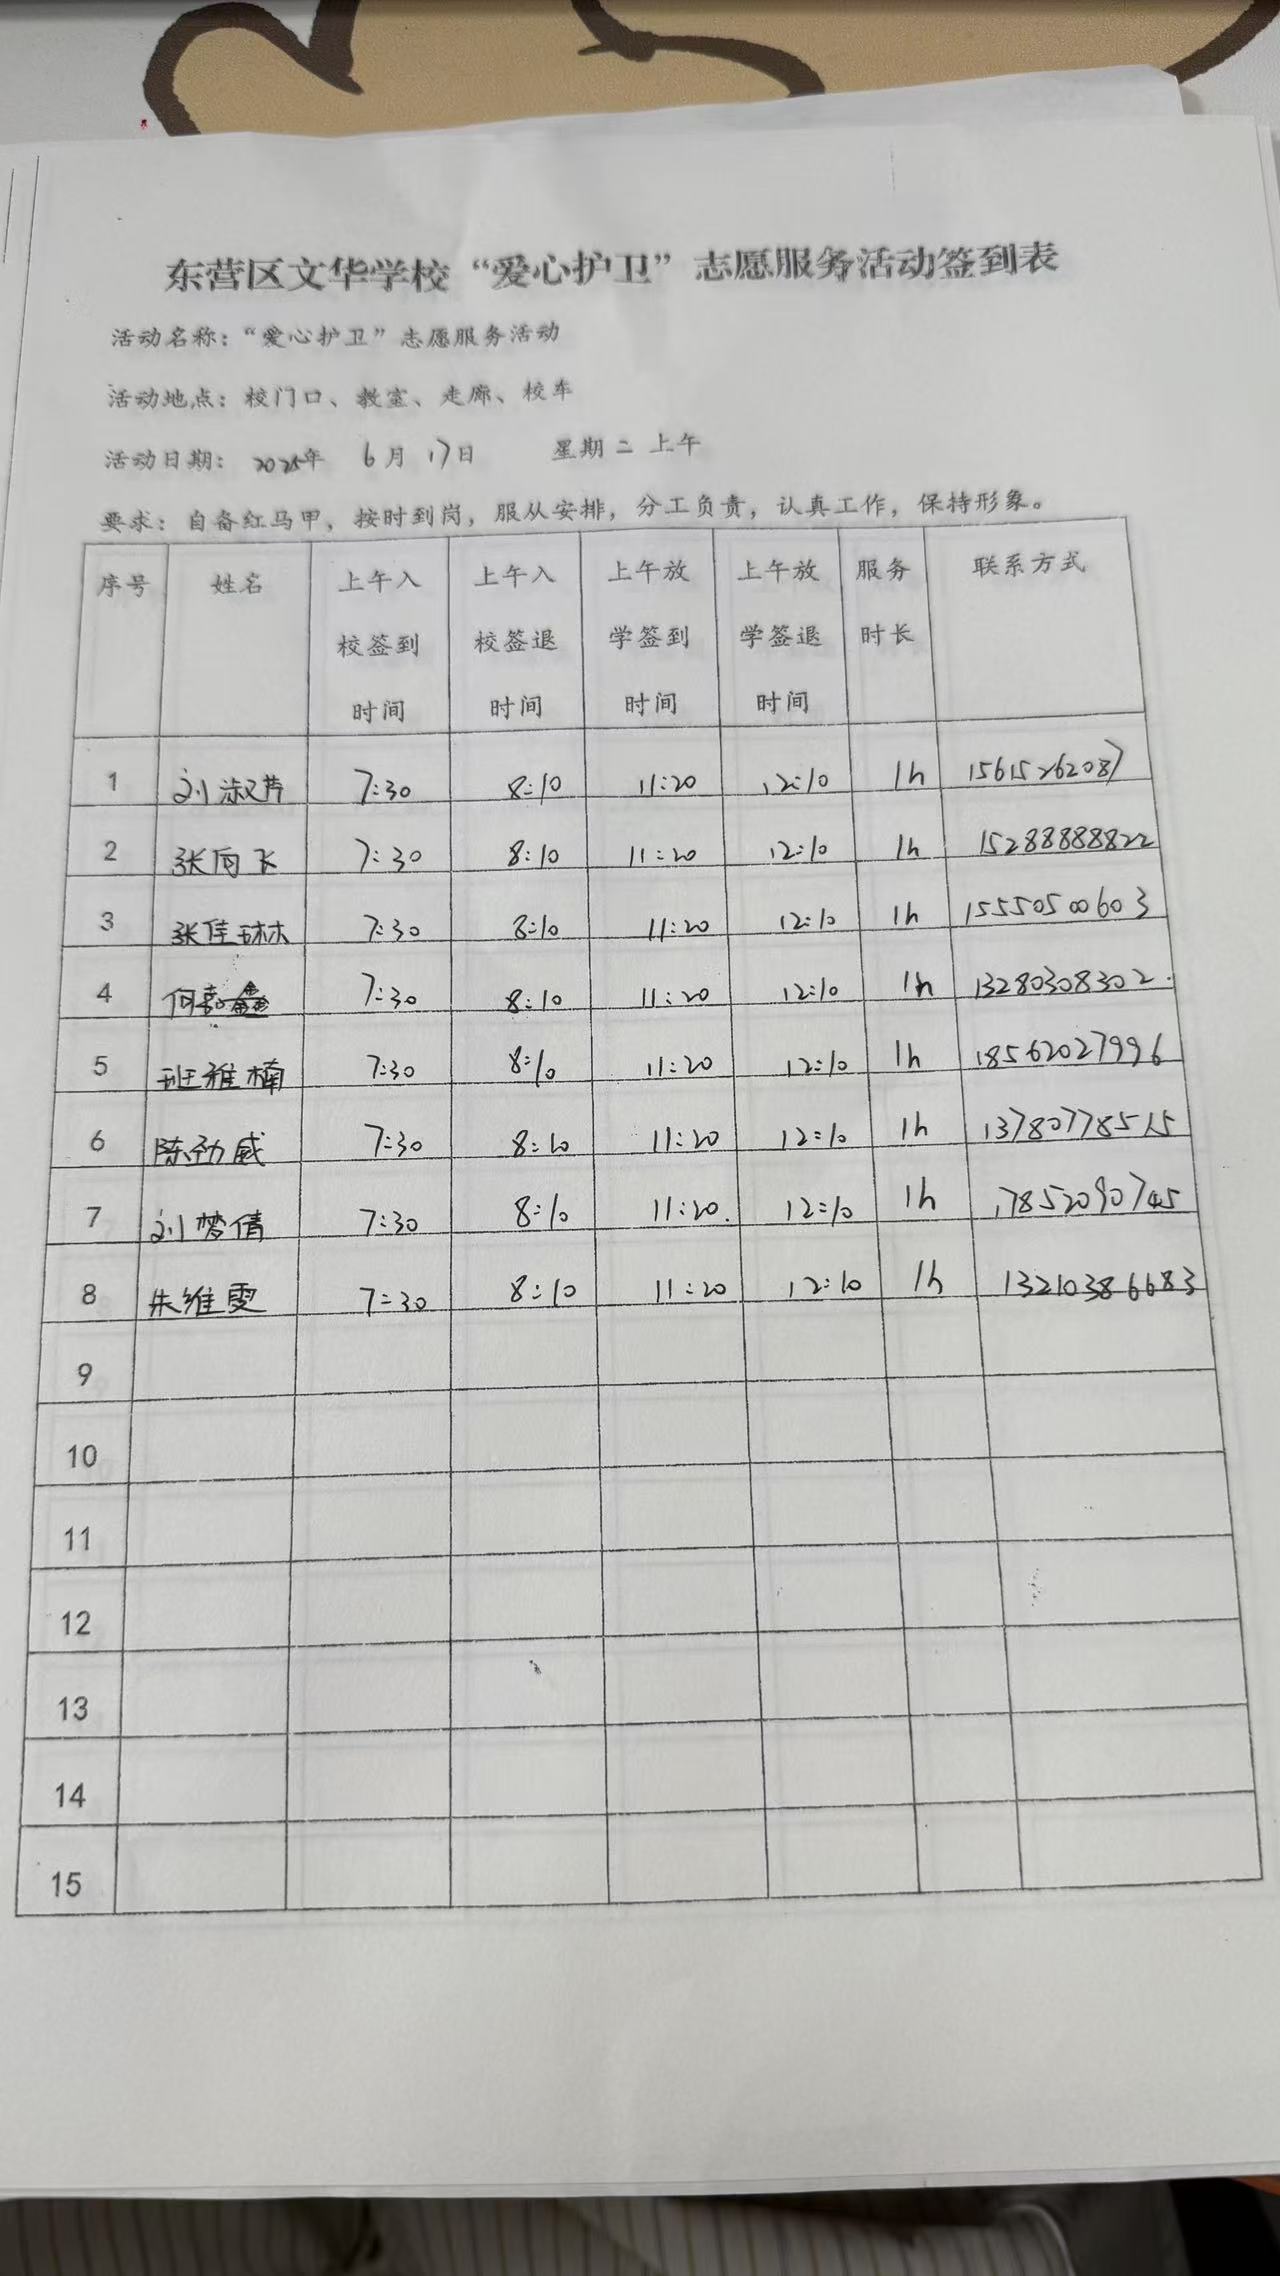 东营区文华学校“爱心护卫”志愿服务活动签到表
活动名称：“爱心护卫”志愿服务活动
活动地点：校门口、教室、走廊、校车
活动日期： 2025年 6月 17日 星期二 上午
要求：自备红马甲，按时到岗，服从安排，分工负责，认真工作，保持形象。
序号 姓名 上午入校签到时间 上午入校签退时间 上午放学签到时间 上午放学签退时间 服务时长 联系方式
1 刘淑芹 7:30 8:10 11:20 12:10 1h 15615262087
2 张向飞 7:30 8:10 11:20 12:10 1h 15288888822
3 张佳琳 7:30 8:10 11:20 12:10 1h 15550500603
4 何嘉鑫 7:30 8:10 11:20 12:10 1h 13280308302
5 班雅楠 7:30 8:10 11:20 12:10 1h 18562027996
6 陈劲威 7:30 8:10 11:20 12:10 1h 13780778515
7 刘梦倩 7:30 8:10 11:20 12:10 1h 17852090745
8 朱维雯 7:30 8:10 11:20 12:10 1h 13210386683
9
10
11
12
13
14
15